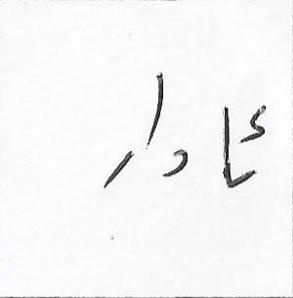 ئادار